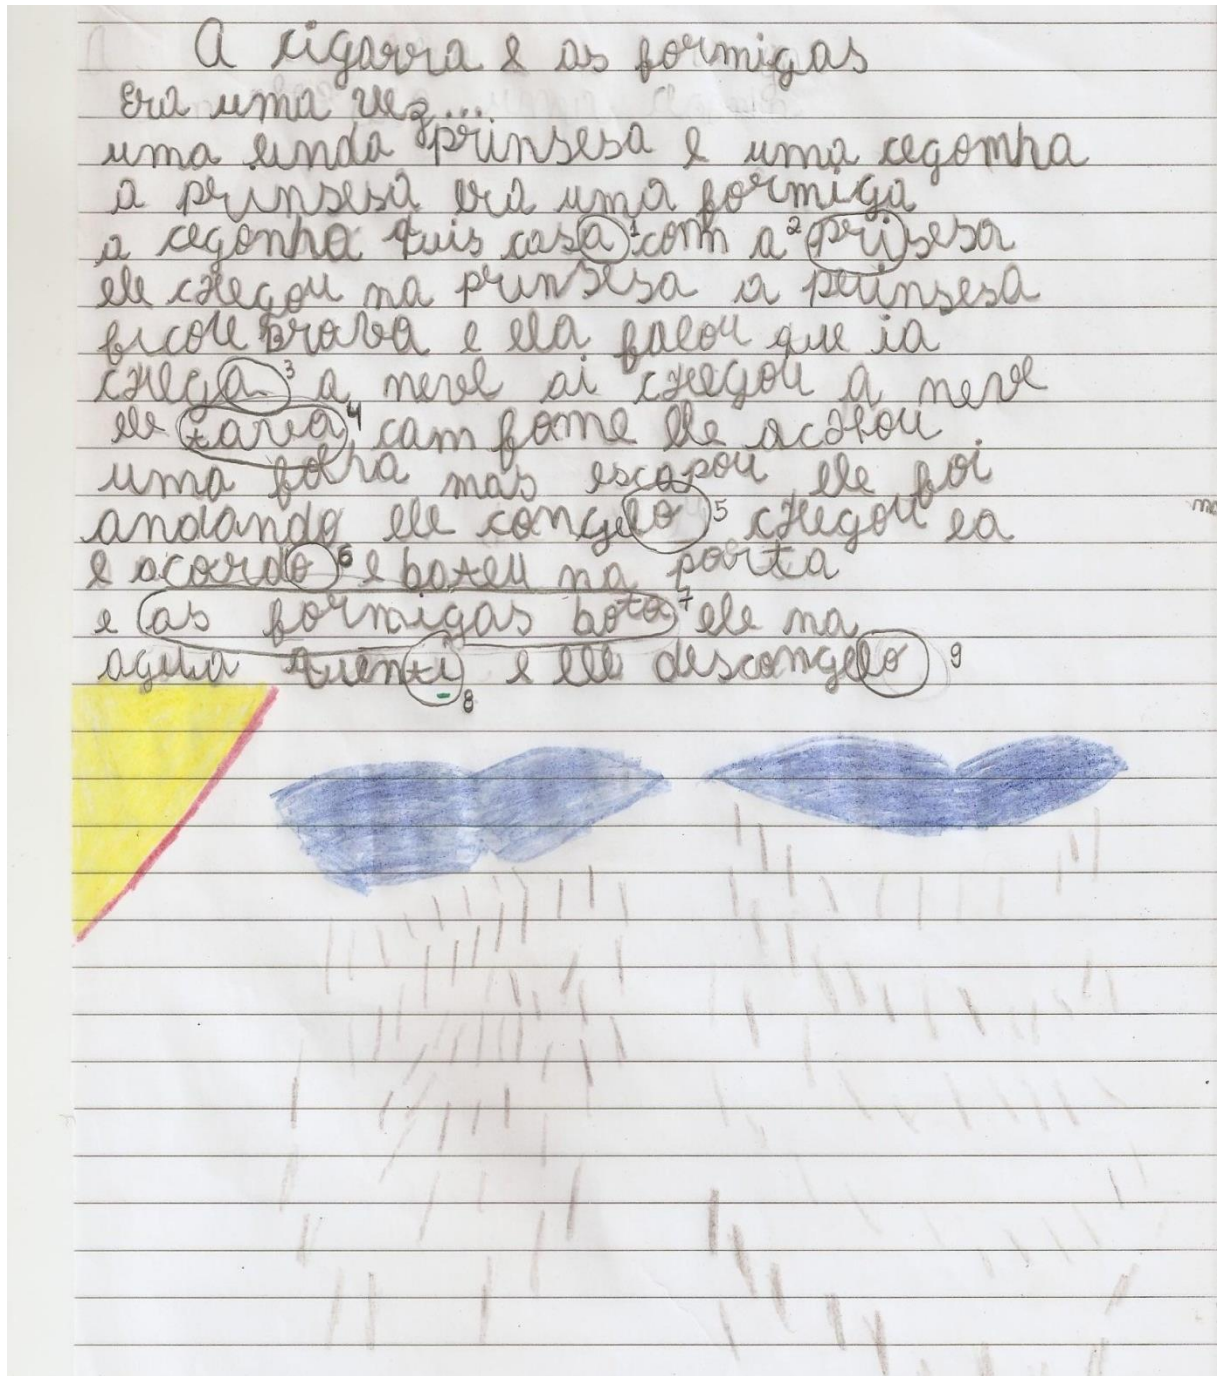 A cigarra e as formigas
Era uma vez...
uma linda prinsesa e uma cegonha
a prinsesa era uma formiga
a cegonha quis casa 1 com a 2 prisesa
ele chegou na prinsesa a prinsesa
ficou brava e ela falou que ia
chega 3 a neve ai chegou a neve
ele tava 4 com fome ele achou
uma folha mas escapou ele foi
andando ele congelo 5 chegou la
e acordo 6 e bateu na porta
e as formigas bota 7 ele na
agua quenti 8 e ele descongelo 9